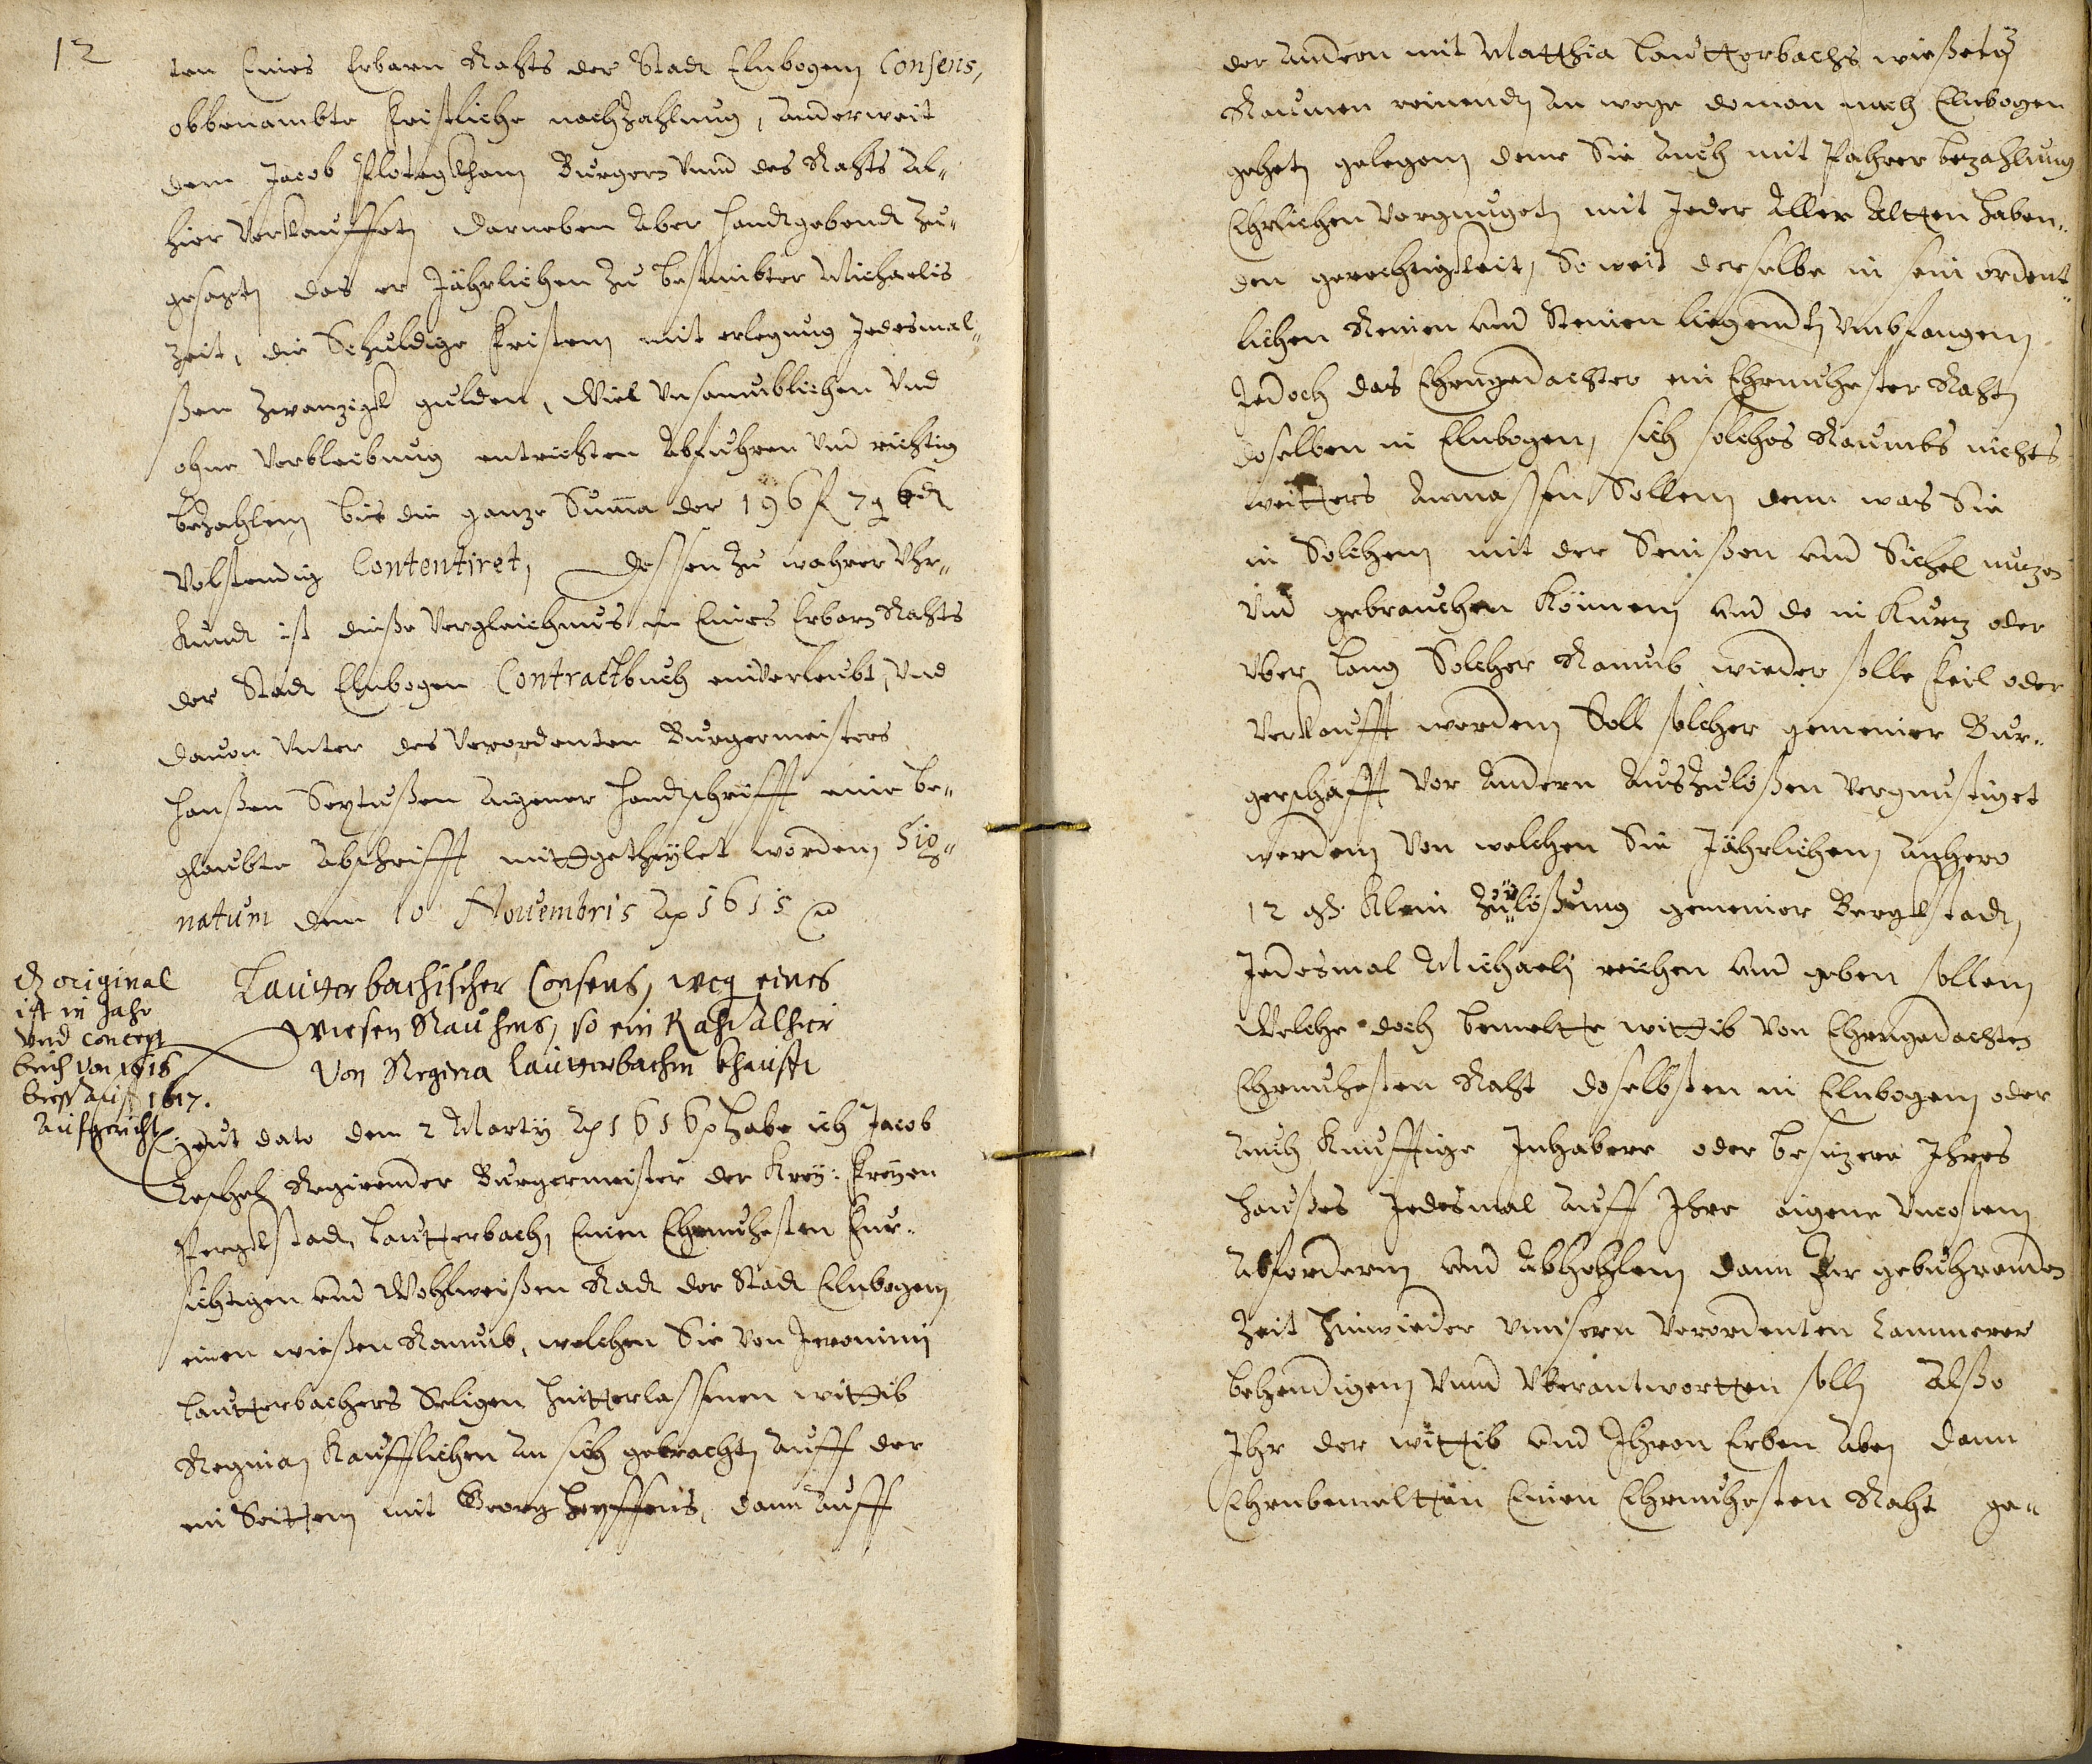 12
ten Eines Erbarn Rahts der Stadt Elnbogen Consens,
obbenambte fristliche nachzahlung, anderweit
dem Jacob Burgern vnnd des Rahts al-
hier verkauffet, darneben aber handtgebendt zu-
gesagt, das er Jährlichen zu bestimbter Michaelis
zeit, die Schuldige fristen mit erlegung Jedesmal-
ßen zwanzigk gulden, Viel vnsaumblichen vnd
ohne verbleibung entrichten abfuhren vnd richtig
bezahlen bis die ganze Suma der 196 f 7 g 6 d
volstendig Contentiret, dessen zu wahrer Vhr-
kundt ist dieße vergleichnus in Eines Erbarn Rahts
der Stadt Elnbogen Contractbuch einverleubt, vnd
dauon vnter des verordenten Burgermeisters
Hanßen aigener handtschrifft eine be-
glaubte abschrifft mittgetheylet worden, Sig-
natum den 10 Nouembris Ao 1615
original
ist in Jahr
vnd concept
buch von 1615
bieß auf 1617.
aufgericht
Lautterbachischer Consens, weg eines
Wiesen Raumes, so ein Raht alhier
von Regina Lautterbachin khaufft
Heut dato den 2 Martij Ao 1616 habe ich Jacob
Regirender Burgermeister der Kay: freyen
Pergkstadt Lautterbach, Einen Ehrnuhesten fur-
sichtigen vnd Wohlweißen Radt der Stadt Elnbogen
einen wießen Raumb, welchen Sie von Jeronimi
Lautterbachers Seligen hintterlassenen wittib
Regina Kaufflichen an sich gebracht, auff der
ein Seitten mit Georg dann auff
der andern mit Matthia Lautterbachs
Raumen reinendt, am wege do man nach Elnbogen
gehet, gelegen, denn Sie auch mit Pahrer bezahlung
Ehrlichen vergnuget, mit Jeder aller altten haben-
den gerechtigkeit, So weit derselbe in sein ordent-
lichen Reinen vnd Steinen liegendt, vmbfangen,
Jedoch das Ehrngedachter ein Ehrnuhester Raht
doselben in Elnbogen, sich solches Raumbs nichts
weitters anmassen Sollen, denn was Sie
in Solchen, mit der Senißen vnd Sichel nuzen
vnd gebrauchen können, vnd do in kurtz oder
vber lang Solcher Raumb wieder solle feil oder
verkaufft werden, Soll solcher gemeiner Bur-
gerschafft vor andern auszulößen vergunstiget
werden, von welchen Sie Jährlichen anhero
12 gß. klein zulößung gemeiner Bergkstadt
Jedesmal Michaeli reichen vnd geben sollen,
Welche doch bemeltte wittib von Ehrngedachten
Ehrnuhesten Raht doselbsten in Elnbogen, oder
auch kunfftige Inhabere oder besizere Ihres
Haußes Jedesmal auff Ihre aigene vncosten
abfordern vnd abhohlen, dann zur gebuhrenden
Zeit hinwieder vnnsern verordenten Cammerer
behendigen vnnd vberantwortten soll, Alßo
Ihr der wittib vnd Ihren Erben aben dann
Ehrnbemeltten Einen Ehrnuhesten Raht ge-